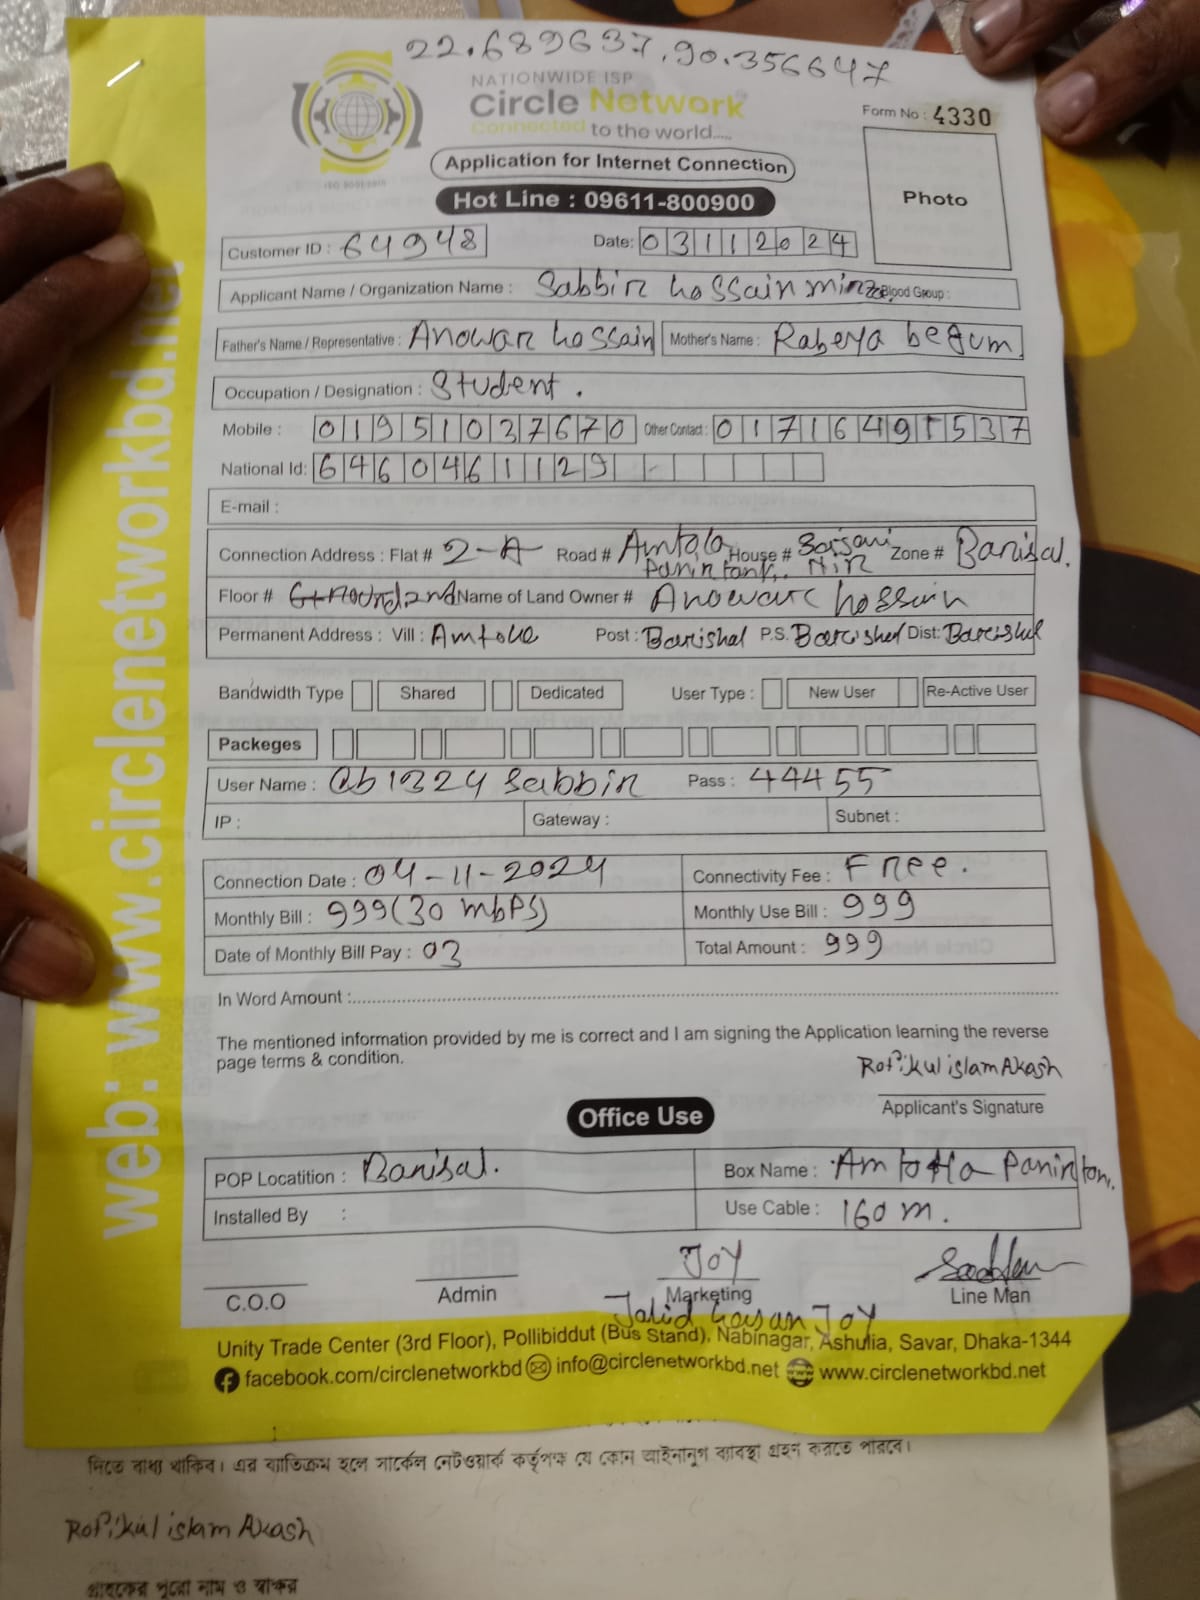 22.689637,90.356647
NATIONWIDE ISP
Circle Network
Connected to the world.....
ISO 9001:2015
Form No : 4330
Application for Internet Connection
Photo
Hot Line : 09611-800900
Customer ID : 64948 Date: 03112024
Applicant Name / Organization Name : Sabbir hossain mirza Blood Group :
Father's Name / Representative : Anowar hossain Mother's Name : Rabeya begum
Occupation / Designation : Student .
Mobile : 01951037670 Other Contact : 01716491537
National Id: 6460461129
E-mail :
Connection Address : Flat # 2-A Road # Amtola Panirtank.. House # Zone # Barisal.
Floor # Name of Land Owner # Anowarc hossain
Permanent Address : Vill : Post : Barishal P.S. Barcishal Dist: Barcishal
Bandwidth Type Shared Dedicated User Type : New User Re-Active User
Packeges
User Name : @b1324 Sabbir Pass : 44455
IP : Gateway : Subnet :
Connection Date : 04-11-2024 Connectivity Fee : Free.
Monthly Bill : 999(30 mbps) Monthly Use Bill : 999
Date of Monthly Bill Pay : 03 Total Amount : 999
In Word Amount :
The mentioned information provided by me is correct and I am signing the Application learning the reverse
page terms & condition.
Rofikul islam Akash
Applicant's Signature
Office Use
POP Locatition : Barisal. Box Name :
Installed By : Use Cable : 160 m.
JOY
C.O.O Admin Marketing Line Man
Jahid hasan JOY
Unity Trade Center (3rd Floor), Pollibiddut (Bus Stand), Nabinagar, Ashulia, Savar, Dhaka-1344
facebook.com/circlenetworkbd info@circlenetworkbd.net www.circlenetworkbd.net
web: www.circlenetworkbd.net
দিতে বাধ্য থাকিব। এর ব্যতিক্রম হলে সার্কেল নেটওয়ার্ক কর্তৃপক্ষ যে কোন আইনানুগ ব্যাবস্থা গ্রহন করতে পারবে।
Rofikul islam Akash
গ্রাহকের পুরো নাম ও স্বাক্ষর